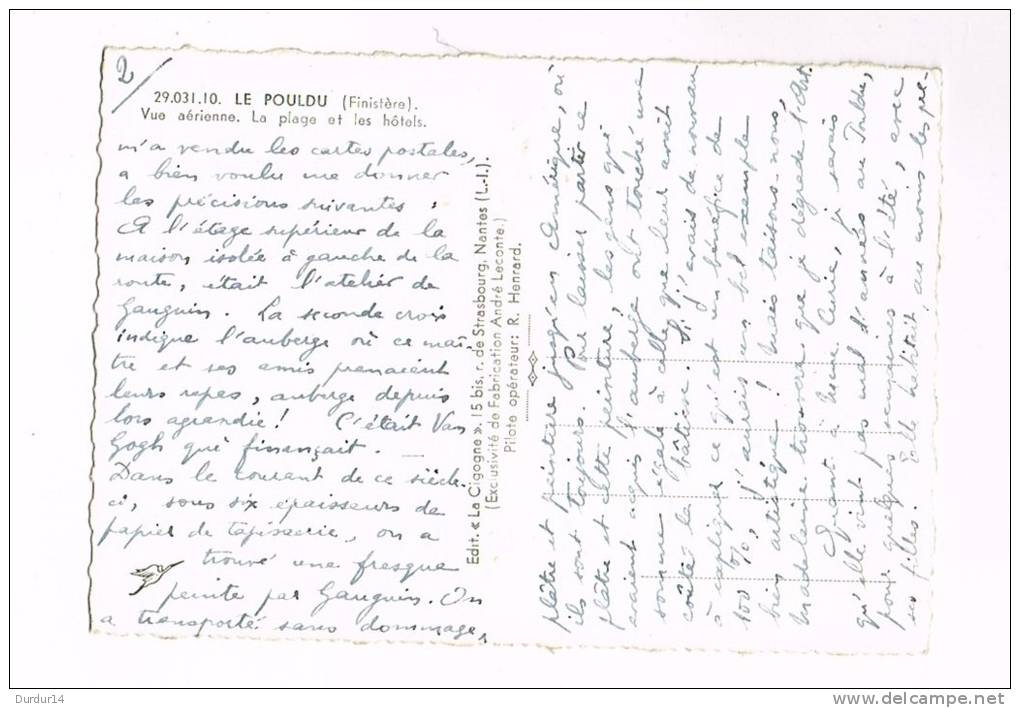 2/
29.031.10. LE POULDU (Finistère).
Vue aérienne. La plage et les hôtels.
m'a vendu les cartes postales,
a bien voulu me donner
les précisions suivantes :
A l'étage supérieur de la
maison isolée à gauche de la
route, était l'atelier de
Gauguin. La seconde croix
indique l'auberge où ce maî-
tre et ses amis prenaient
leurs repas, auberge depuis
lors agrandie! C'était Van
Gogh qui finançait.
Dans le courant de ce siècle-
ci, sous six épaisseurs de
papier de tapisserie, on a
trouvé une fresque
peinte par Gauguin. On
a transporté sans dommage,
Edit. « La Cigogne ». 15 bis, r. de Strasbourg. Nantes (L.-I.).
(Exclusivité de Fabrication André Leconte.)
Pilote opérateur: R. Henrard.
plâtre et peinture jusqu'en Amérique, où
ils sont toujours. Pour laisser partir ce
plâtre et cette peinture, les gens qui
avaient acquis l'auberge ont touché une
somme égale à celle que leur avait
coûté la bâtisse. Si j'avais de nouveau
à expliquer ce qu'est un bénéfice de
100 %, j'aurais un bel exemple
bien artistique ! Mais taisons-nous,
Madeleine trouvera que je dégrade l'Art.
Quant à Mme Curie, je savais
qu'elle vint pas mal d'années au Pouldu,
pour quelques semaines à l'été, avec
ses filles. Elle habitait au moins les pre-
Durdur14
delcampe.net